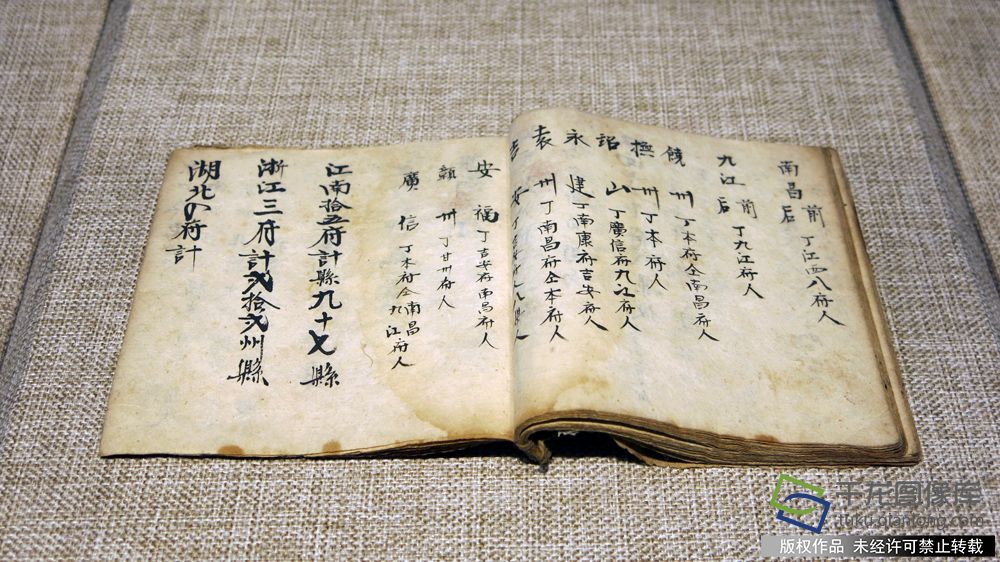 南昌 前 后 丁江西八府人
九江 前 后 丁九江府人
饒州 丁本府仝南昌府人
撫州 丁本府人
鉛山 丁廣信府九江府人
永建 丁南康府吉安府人
袁州 丁南昌府仝本府人
吉安
安福 丁吉安府南昌府人
贛州 丁廿州府人
廣信 丁本府仝九江南昌府人
江南拾五府計縣九十七縣
浙江三府計弍拾弍州縣
湖北の府計
千龙图像库
tuku.qianlong.com
版权作品 未经许可禁止转载